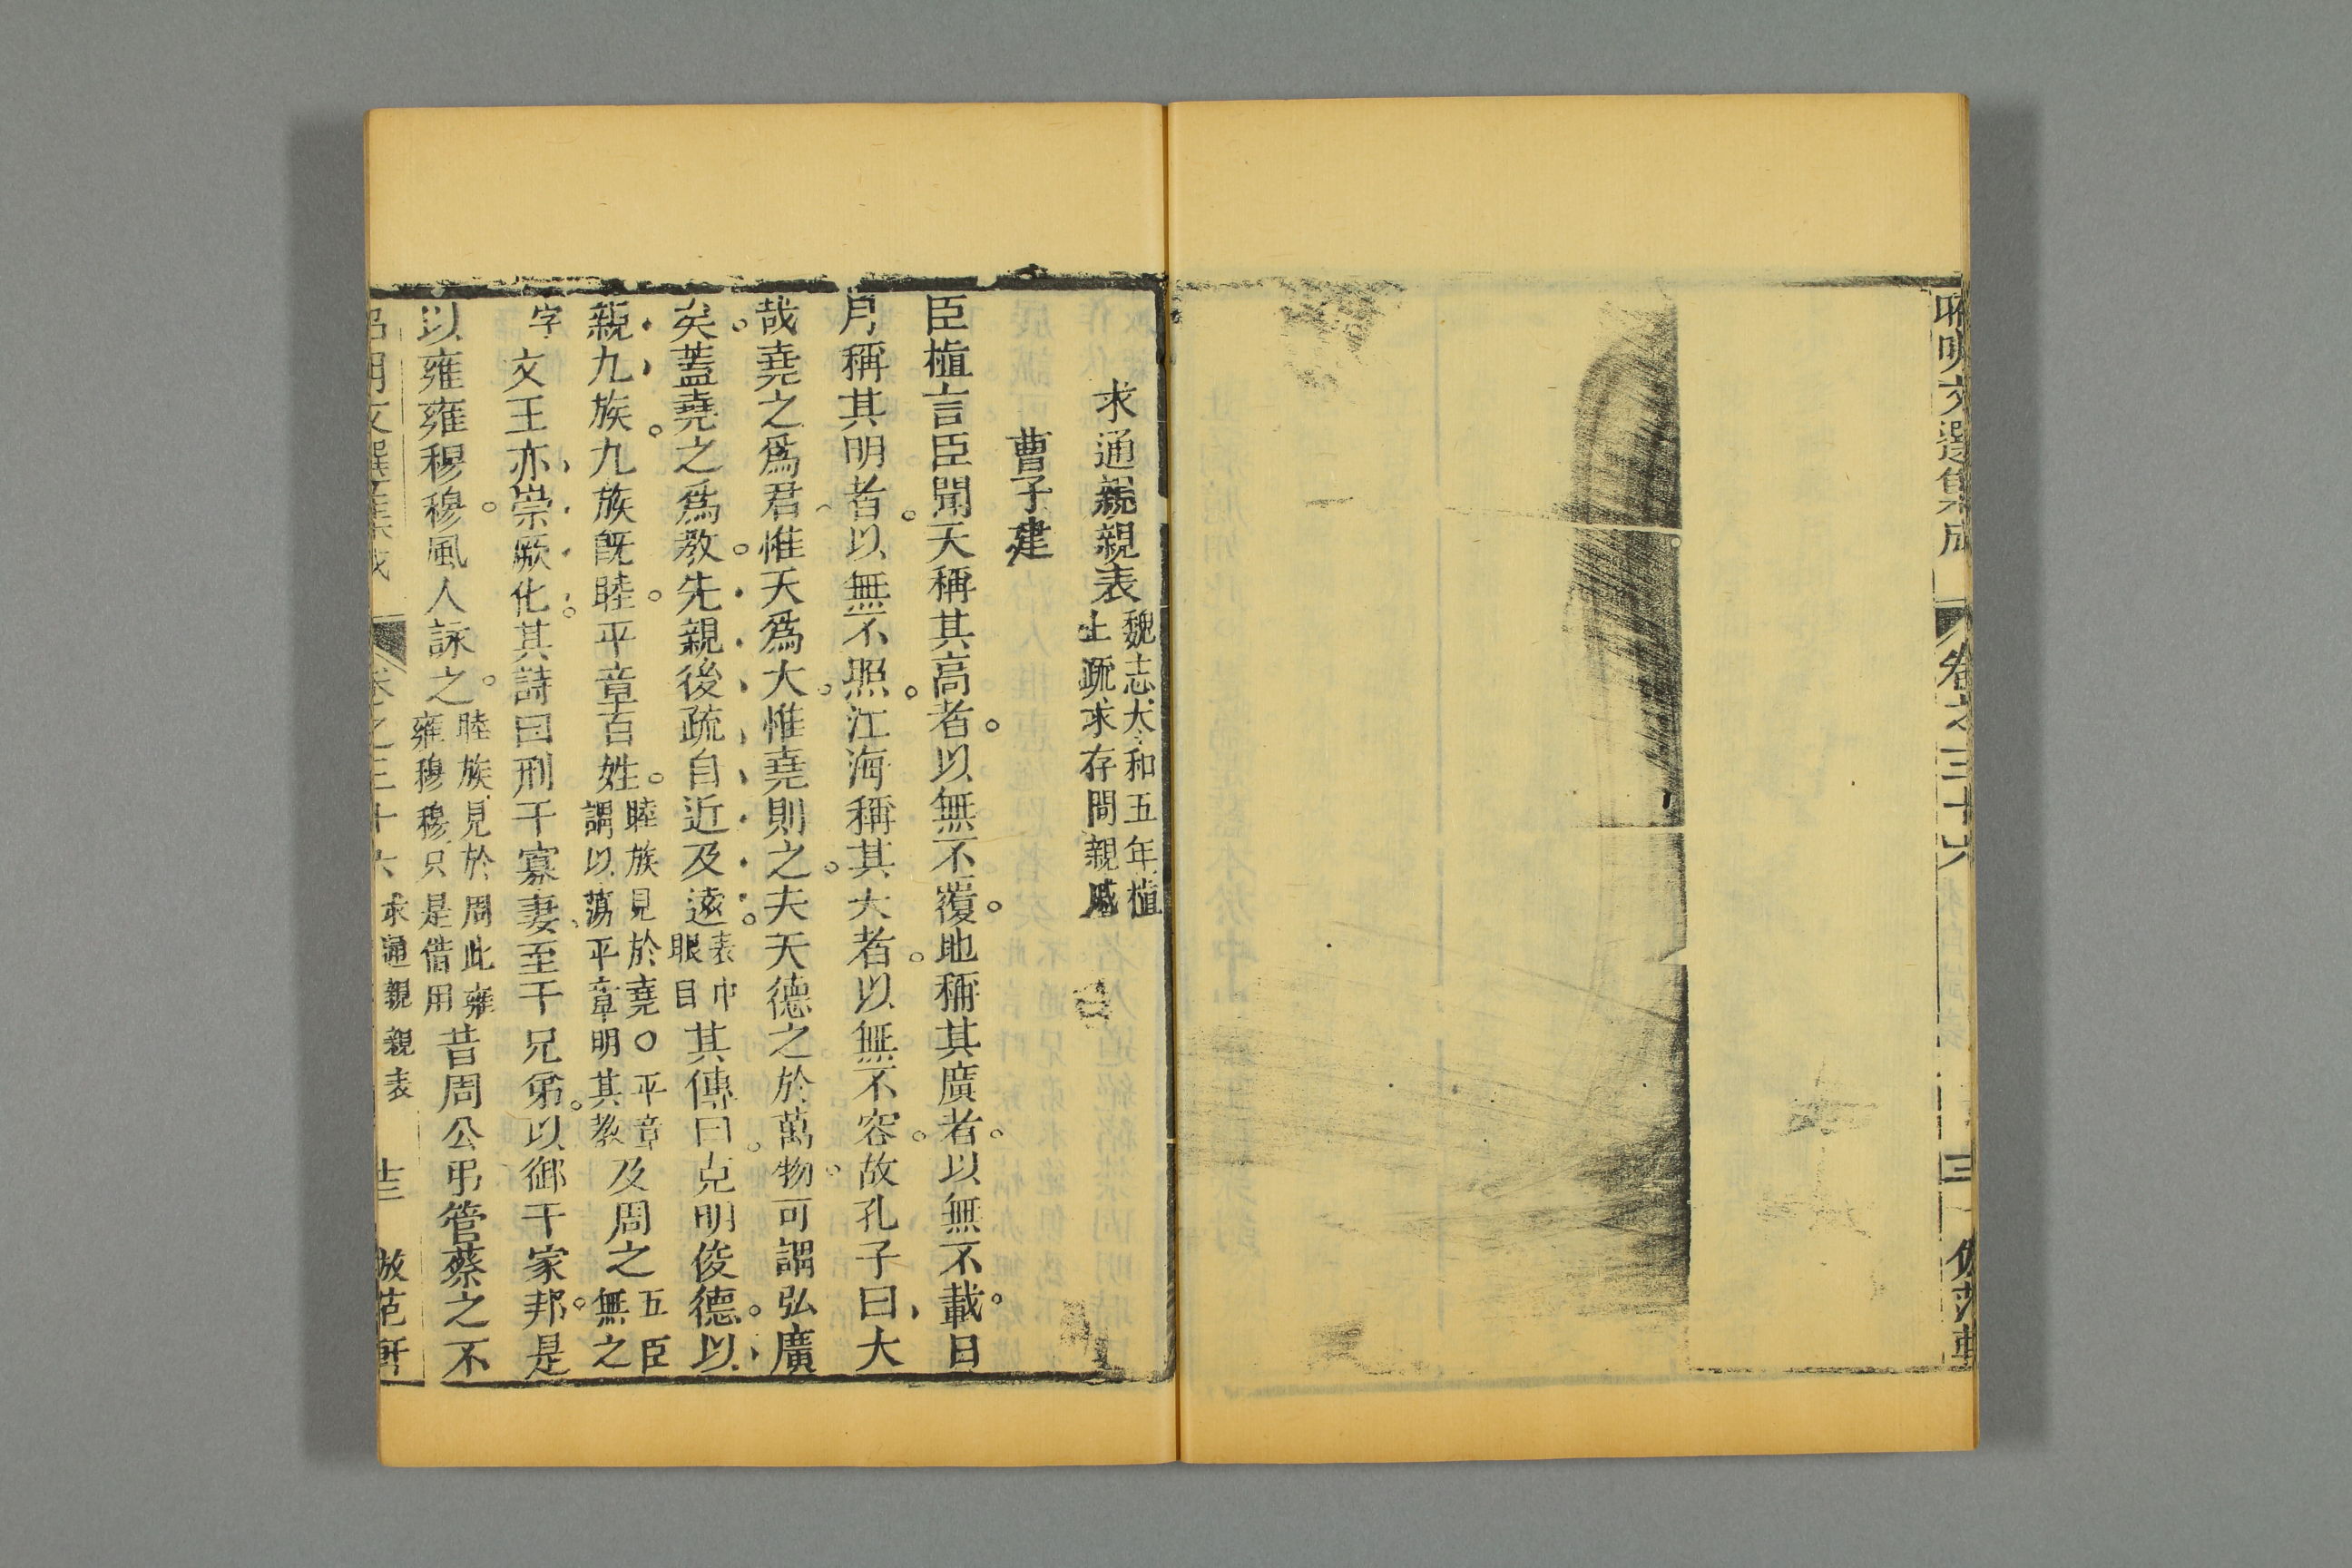 昭明文選集成 卷之三十六 三 倣范軒
求通親親表 魏志太和五年植上疏求存問親戚
曹子建
臣植言臣聞天稱其高者以無不覆地稱其廣者以無不載日
月稱其明者以無不照江海稱其大者以無不容故孔子曰大
哉堯之爲君惟天爲大惟堯則之夫天德之於萬物可謂弘廣
矣蓋堯之爲教先親後疏自近及遠表巾眼目其傳曰克明俊德以
親九族九族旣睦平章百姓睦族見於堯○平章謂以蕩平章明其教及周之五臣無之
字文王亦崇厥化其詩曰刑于寡妻至于兄弟以御于家邦是
以雍雍穆穆風人詠之睦族見於周此雍雍穆穆只是借用昔周公弔管蔡之不
昭明文選集成 卷之三十六 求通親親表 十三 倣范軒